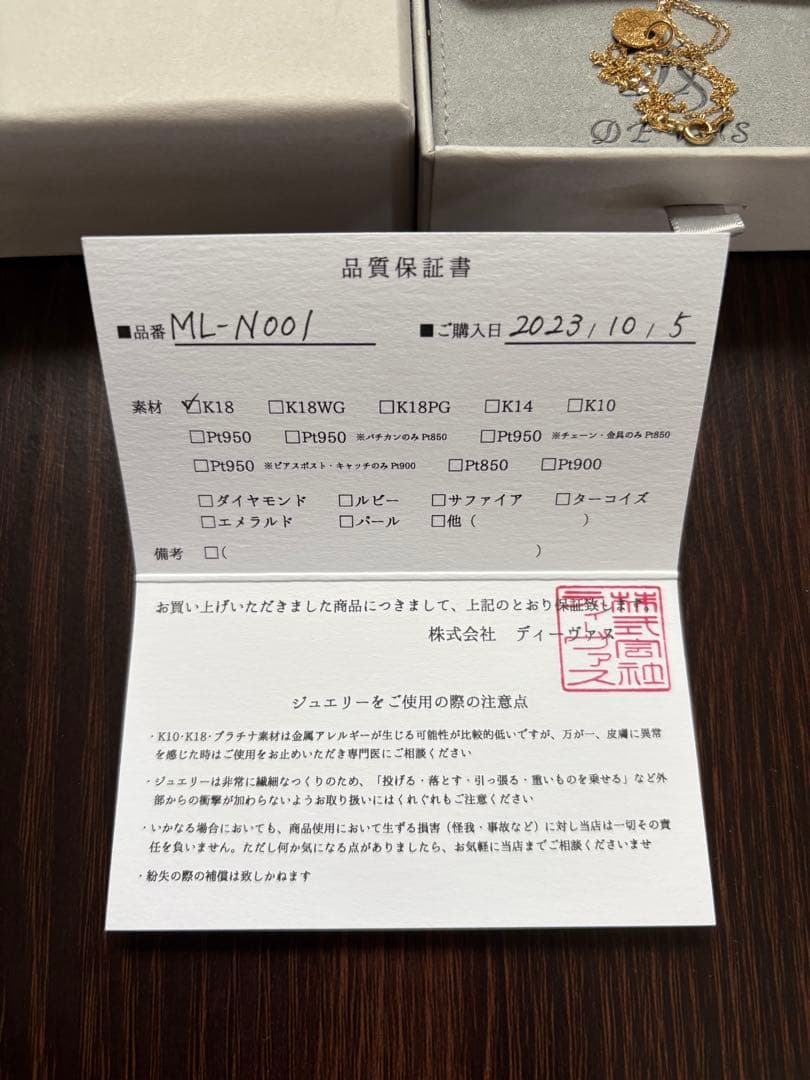 品質保証書
■品番 ML-N001 ■ご購入日 2023/10/5
素材 ☑K18 □K18WG □K18PG □K14 □K10
□Pt950 □Pt950 ※バチカンのみPt850 □Pt950 ※チェーン・金具のみPt850
□Pt950 ※ピアスポスト・キャッチのみPt900 □Pt850 □Pt900
□ダイヤモンド □ルビー □サファイア □ターコイズ
□エメラルド □パール □他( )
備考 □( )
お買い上げいただきました商品につきまして、上記のとおり保証致します。
株式会社 ディーヴァス
株式会社
ディーヴァス
ジュエリーをご使用の際の注意点
・K10・K18・プラチナ素材は金属アレルギーが生じる可能性が比較的低いですが、万が一、皮膚に異常
を感じた時はご使用をお止めいただき専門医にご相談ください
・ジュエリーは非常に繊細なつくりのため、「投げる・落とす・引っ張る・重いものを乗せる」など外
部からの衝撃が加わらないようお取り扱いにはくれぐれもご注意ください
・いかなる場合においても、商品使用において生ずる損害（怪我・事故など）に対し当店は一切その責
任を負いません。ただし何か気になる点がありましたら、お気軽に当店までご相談くださいませ
・紛失の際の補償は致しかねます